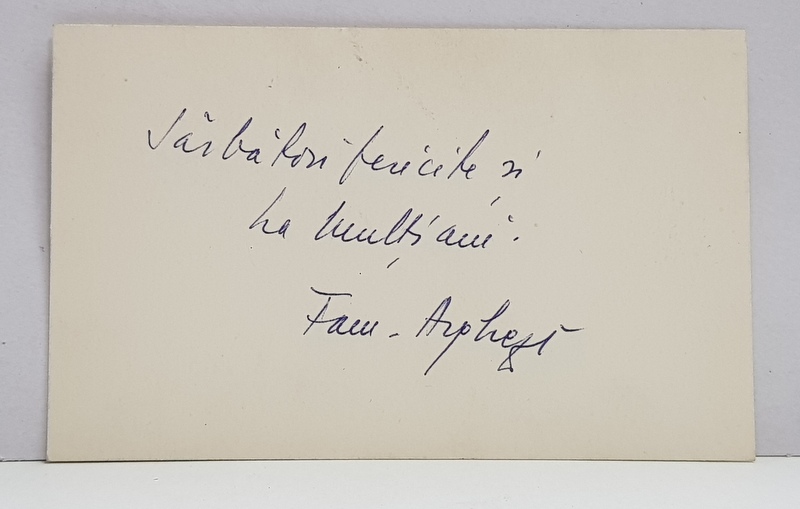 Sărbători fericite și
La mulți ani.
Fam.